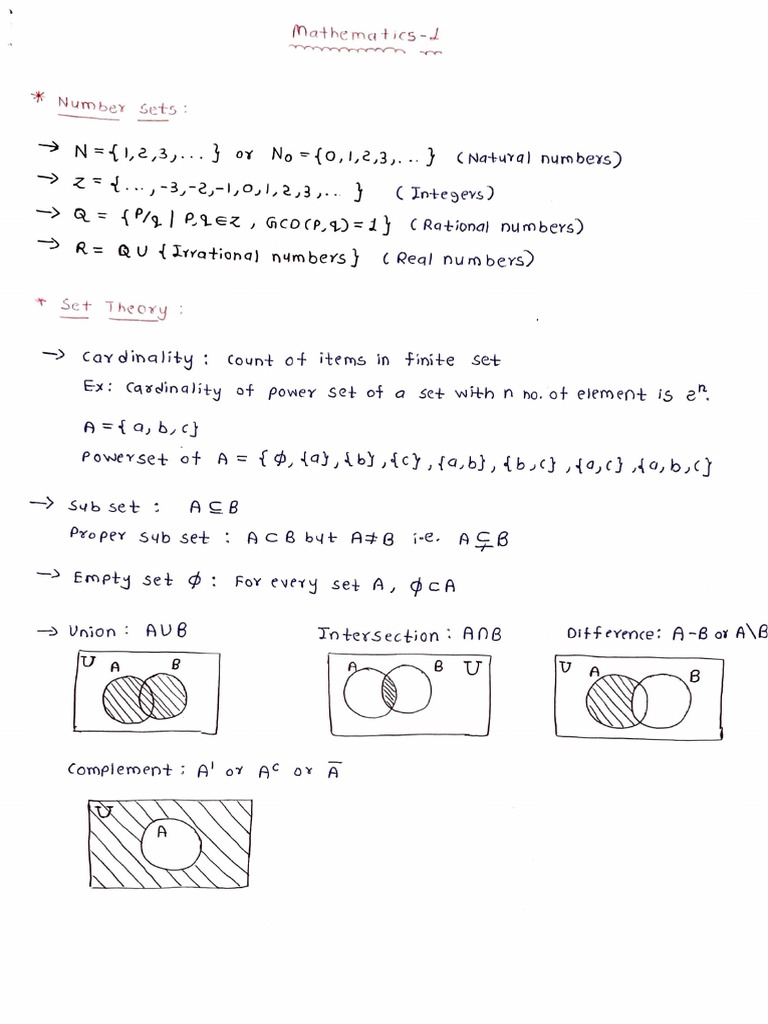 Mathematics-1
* Number sets:
→ N = {1, 2, 3, ...} or N₀ = {0, 1, 2, 3, ...} (Natural numbers)
→ Z = {..., -3, -2, -1, 0, 1, 2, 3, ...} (Integers)
→ Q = {P/q | P, q ∈ Z, GCD(P, q) = 1} (Rational numbers)
→ R = Q ∪ {Irrational numbers} (Real numbers)
* Set Theory:
→ Cardinality: count of items in finite set
Ex: Cardinality of power set of a set with n no. of element is 2ⁿ.
A = {a, b, c}
Powerset of A = {ϕ, {a}, {b}, {c}, {a,b}, {b,c}, {a,c}, {a,b,c}
→ Sub set: A ⊆ B
Proper sub set: A ⊂ B but A ≠ B i.e. A ⊊ B
→ Empty set ϕ: For every set A, ϕ ⊂ A
→ Union: A∪B Intersection: A∩B Difference: A-B or A\B
U A B A B U U A B
Complement: A' or Aᶜ or A̅
U
A